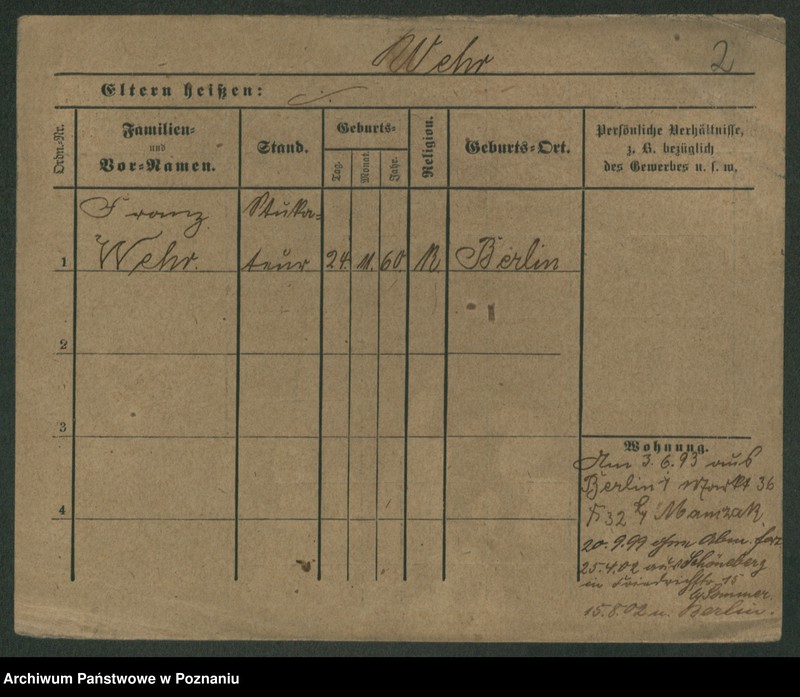 Wehr
2
Eltern heißen:
Ordn.-Nr.
Familien-
und
Vor-Namen.
Stand.
Geburts-
Tag.
Monat.
Jahr.
Religion.
Geburts-Ort.
Persönliche Verhältnisse,
z. B. bezüglich
des Gewerbes u. s. w.
Franz Stuka-
1 Wehr. teur 24. 11. 60 K Berlin
2
3
4
Wohnung.
Am 3.6.93 aus
Berlin i Markt 36
32 Mamzak.
20.9.99 ohne Abm. fort
25.4.02 aus Schöneberg
in Friedrichstr. 15
Sommer.
15.8.02 n. Berlin.
Archiwum Państwowe w Poznaniu